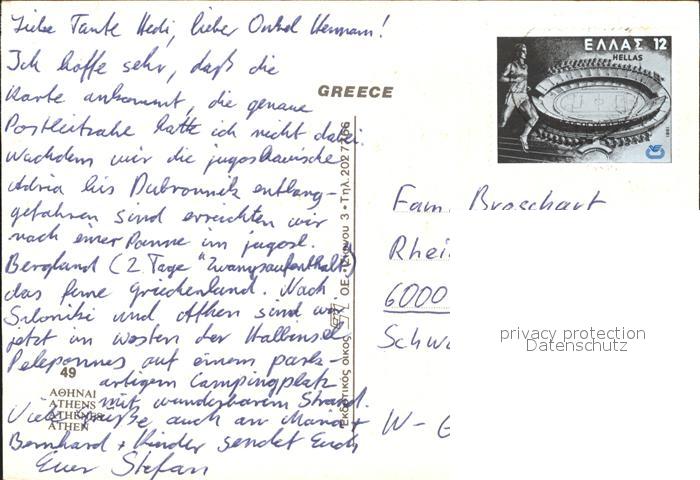 Liebe Tante Hedi, lieber Onkel Hermann!
Ich hoffe sehr, daß die
Karte ankommt, die genaue
Postleitzahl hatte ich nicht dabei.
Nachdem wir die jugoslawische
Adria bis Dubrovnik entlang-
gefahren sind erreichten wir
nach einer Panne im jugosl.
Bergland (2 Tage "Zwangsaufenthalt")
das ferne Griechenland. Nach
Saloniki und Athen sind wir
jetzt im Westen der Halbinsel
Peleponnes auf einem park-
artigem Campingplatz
mit wunderbarem Strand.
Viele Grüße auch an Maria +
Bernhard + Kinder sendet Euch
Euer Stefan
49
ΑΘΗΝΑΙ
ATHENS
ATHENES
ATHEN
GREECE
Εκδοτικός οίκος
3 • Τηλ. 2027
ΕΛΛΑΣ 12
HELLAS
1981
Fam. Broschart
Rhei
6000
Schw
W- G
privacy protection
Datenschutz